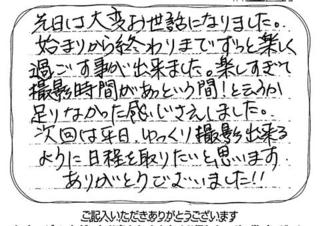 先日は大変お世話になりました。
始まりから終わりまでずっと楽しく
過ごす事が出来ました。楽しすぎて
撮影時間があっという間!と言うか
足りなかった感じさえしました。
次回は平日、ゆっくり撮影出来る
ように日程を取りたいと思います
ありがとうございました!!
ご記入いただきありがとうございます